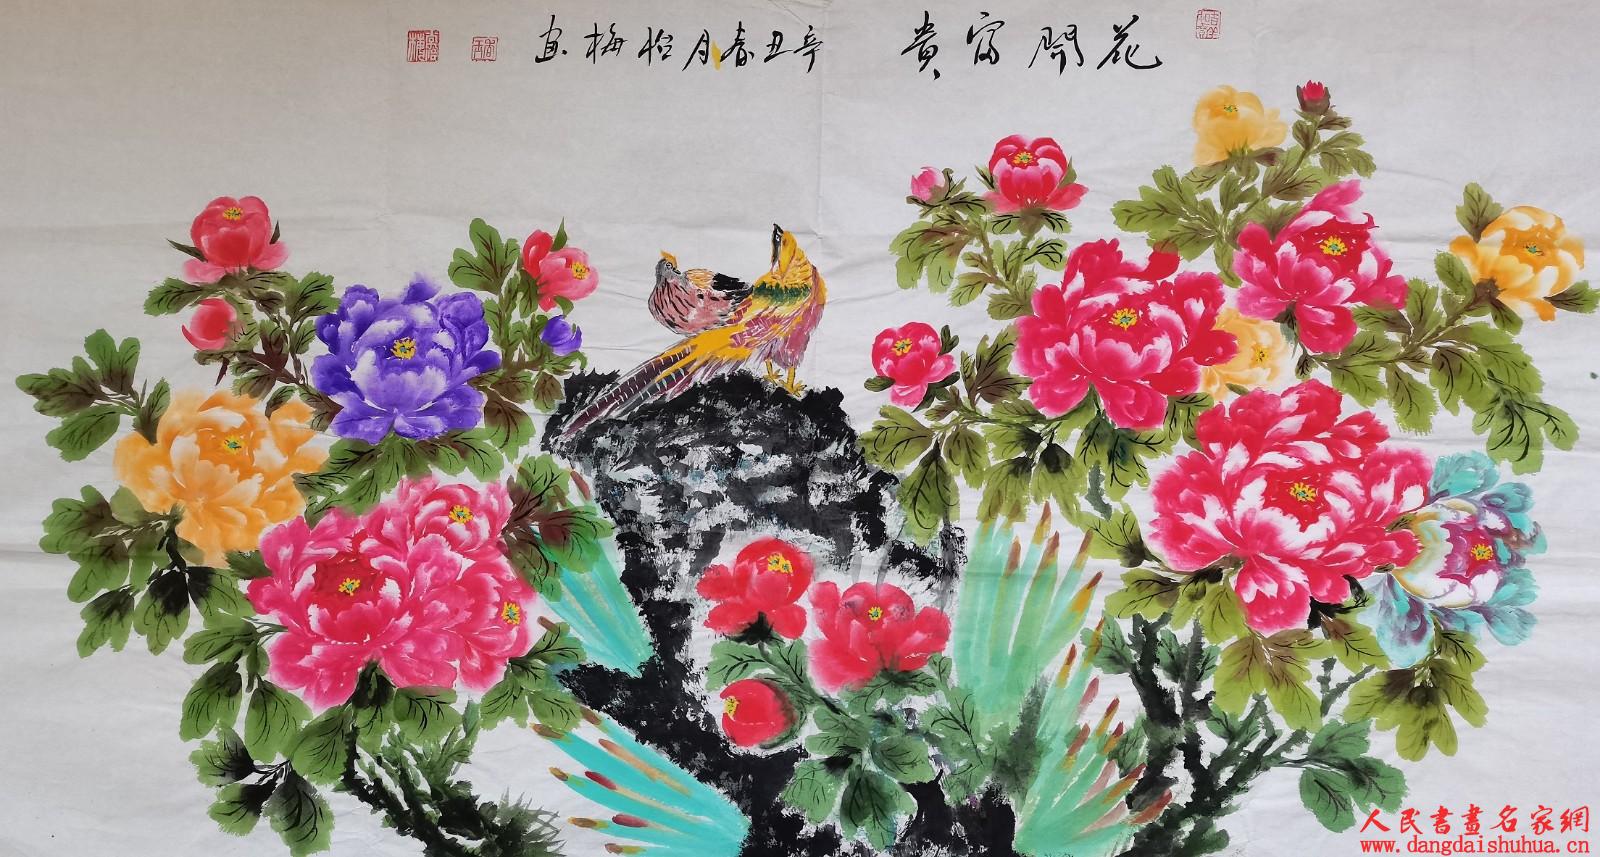 花開富貴
辛丑春月怡梅画
人民書畫名家網
www.dangdaishuhua.cn